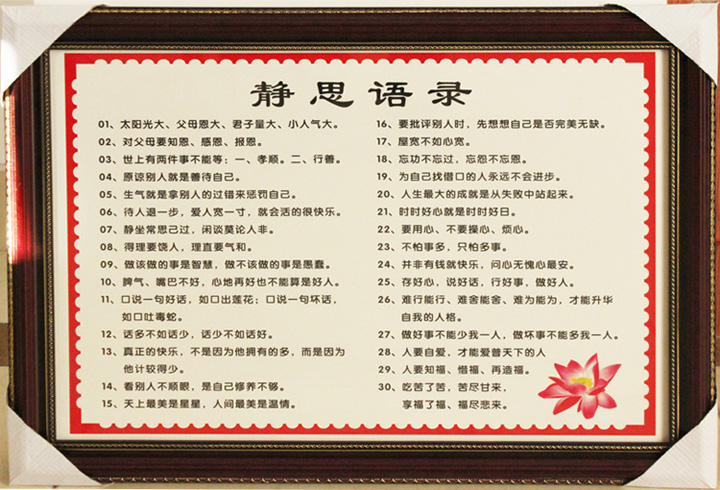 静思语录
01、太阳光大、父母恩大、君子量大、小人气大。
02、对父母要知恩、感恩、报恩。
03、世上有两件事不能等：一、孝顺。二、行善。
04、原谅别人就是善待自己。
05、生气就是拿别人的过错来惩罚自己。
06、待人退一步，爱人宽一寸，就会活的很快乐。
07、静坐常思己过，闲谈莫论人非。
08、得理要饶人，理直要气和。
09、做该做的事是智慧，做不该做的事是愚蠢。
10、脾气、嘴巴不好，心地再好也不能算是好人。
11、口说一句好话，如口出莲花；口说一句坏话，
如口吐毒蛇。
12、话多不如话少，话少不如话好。
13、真正的快乐，不是因为他拥有的多，而是因为
他计较得少。
14、看别人不顺眼，是自己修养不够。
15、天上最美是星星，人间最美是温情。
16、要批评别人时，先想想自己是否完美无缺。
17、屋宽不如心宽。
18、忘功不忘过，忘怨不忘恩。
19、为自己找借口的人永远不会进步。
20、人生最大的成就是从失败中站起来。
21、时时好心就是时时好日。
22、要用心、不要操心、烦心。
23、不怕事多，只怕多事。
24、并非有钱就快乐，问心无愧心最安。
25、存好心，说好话，行好事，做好人。
26、难行能行、难舍能舍、难为能为，才能升华
自我的人格。
27、做好事不能少我一人，做坏事不能多我一人。
28、人要自爱，才能爱普天下的人
29、人要知福、惜福、再造福。
30、吃苦了苦，苦尽甘来，
享福了福、福尽悲来。